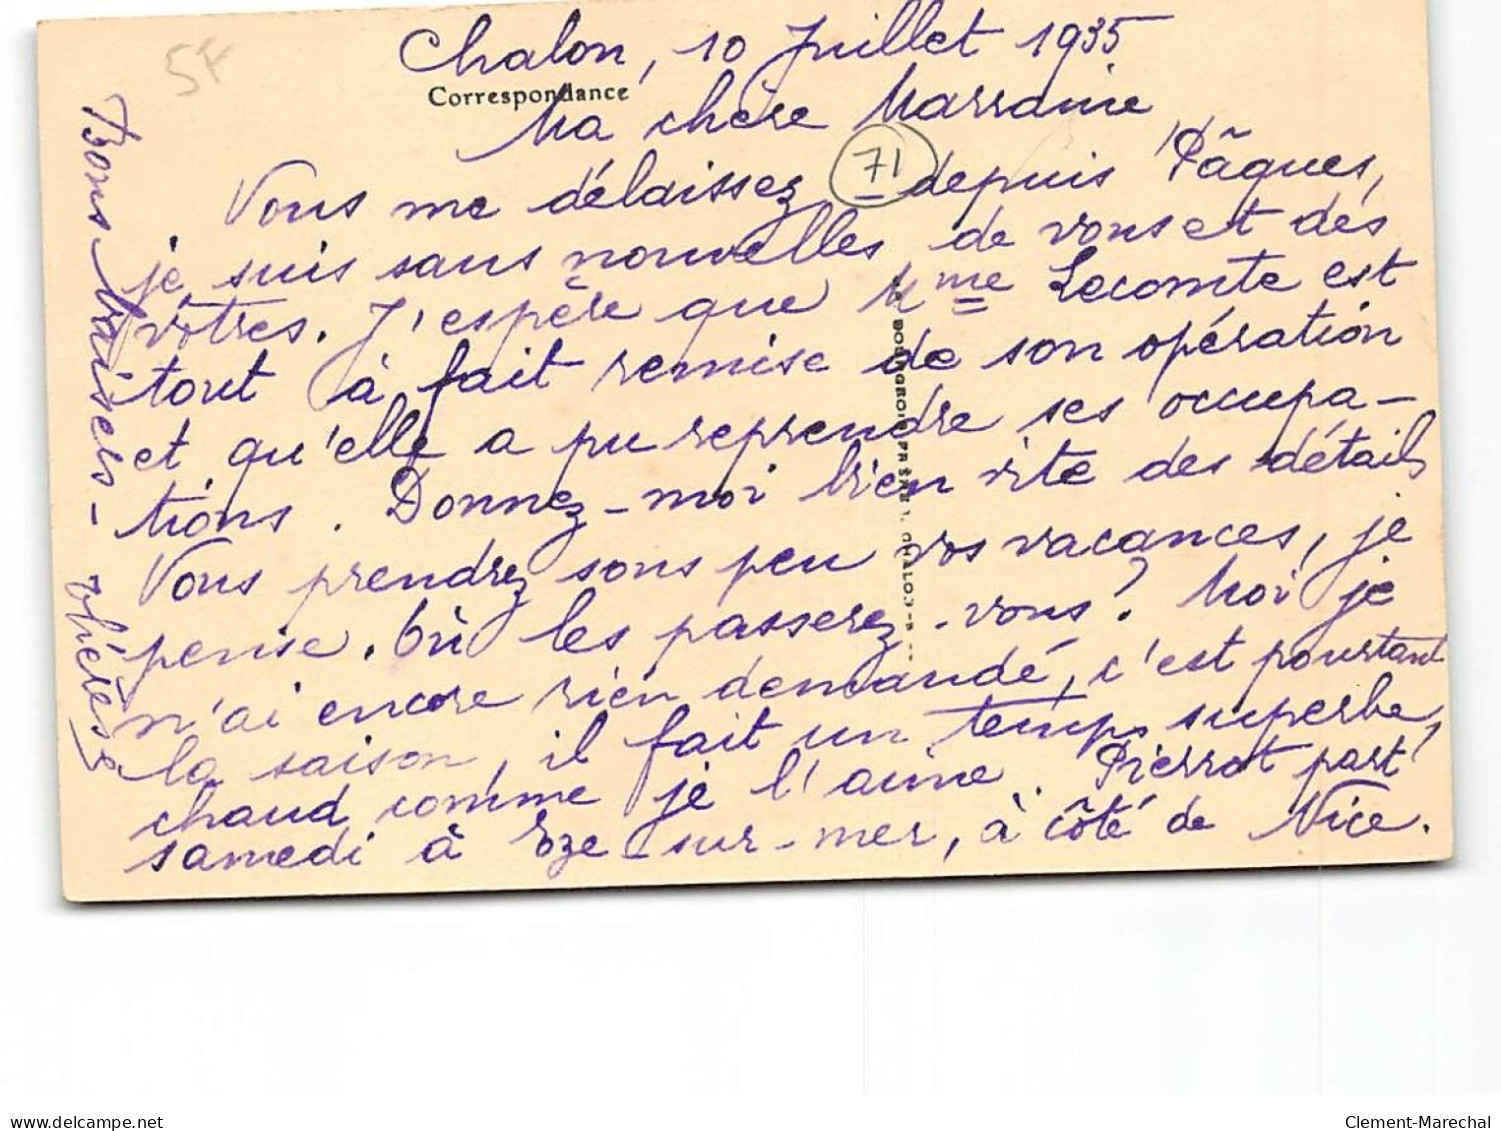 5F
Chalon, 10 Juillet 1935
Correspondance
Ma chère Marraine
71
Vous me délaissez depuis Pâques,
je suis sans nouvelles de vous et des
vôtres. J'espère que Mme Lecomte est
tout à fait remise de son opération
et qu'elle a pu reprendre ses occupa-
tions. Donnez-moi bien vite des détails
Vous prendrez sous peu vos vacances, je
pense. Où les passerez-vous? Moi je
n'ai encore rien demandé, c'est pourtant
la saison, il fait un temps superbe,
chaud comme je l'aime. Pierrot part
samedi à Eze-sur-mer, à côté de Nice.
Bons baisers - Thérèse
BOURGEOIS FRÈRES, CHALON-S
www.delcampe.net
Clement-Marechal